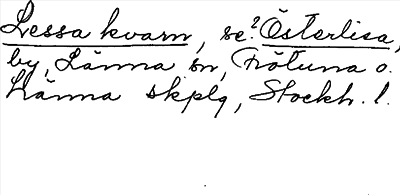 Lessa kvarn, se ?Österlisa,
by, Länna sn, Frötuna o.
Länna skplg, Stockh. l.